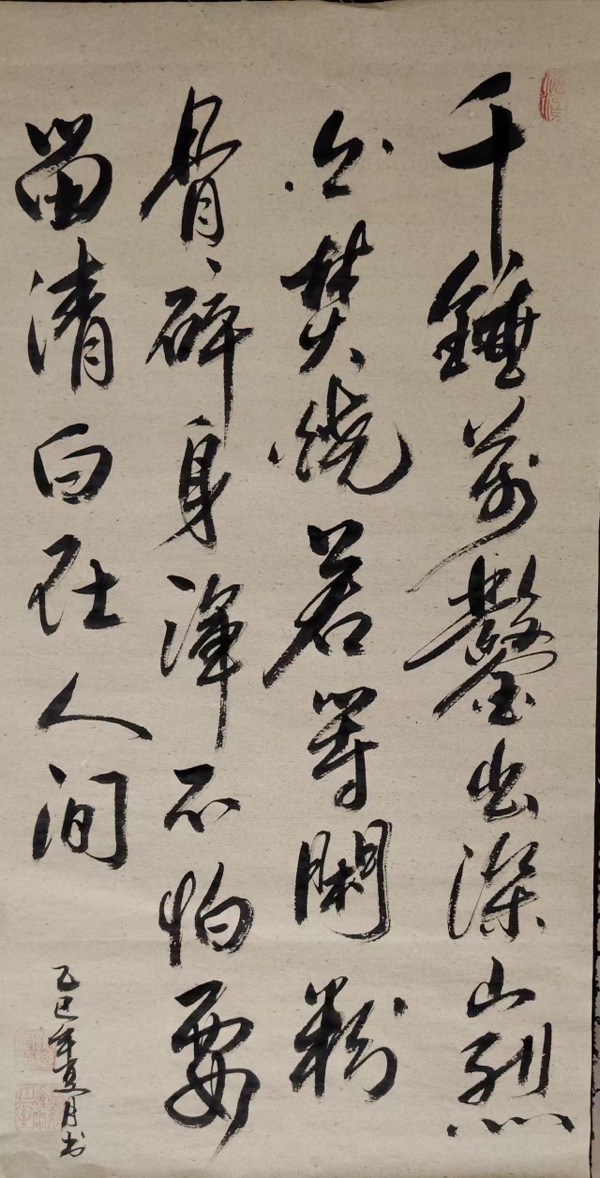 千錘萬鑿出深山烈
火焚燒若等閑粉
骨碎身渾不怕要
留清白在人間
乙巳年夏月书